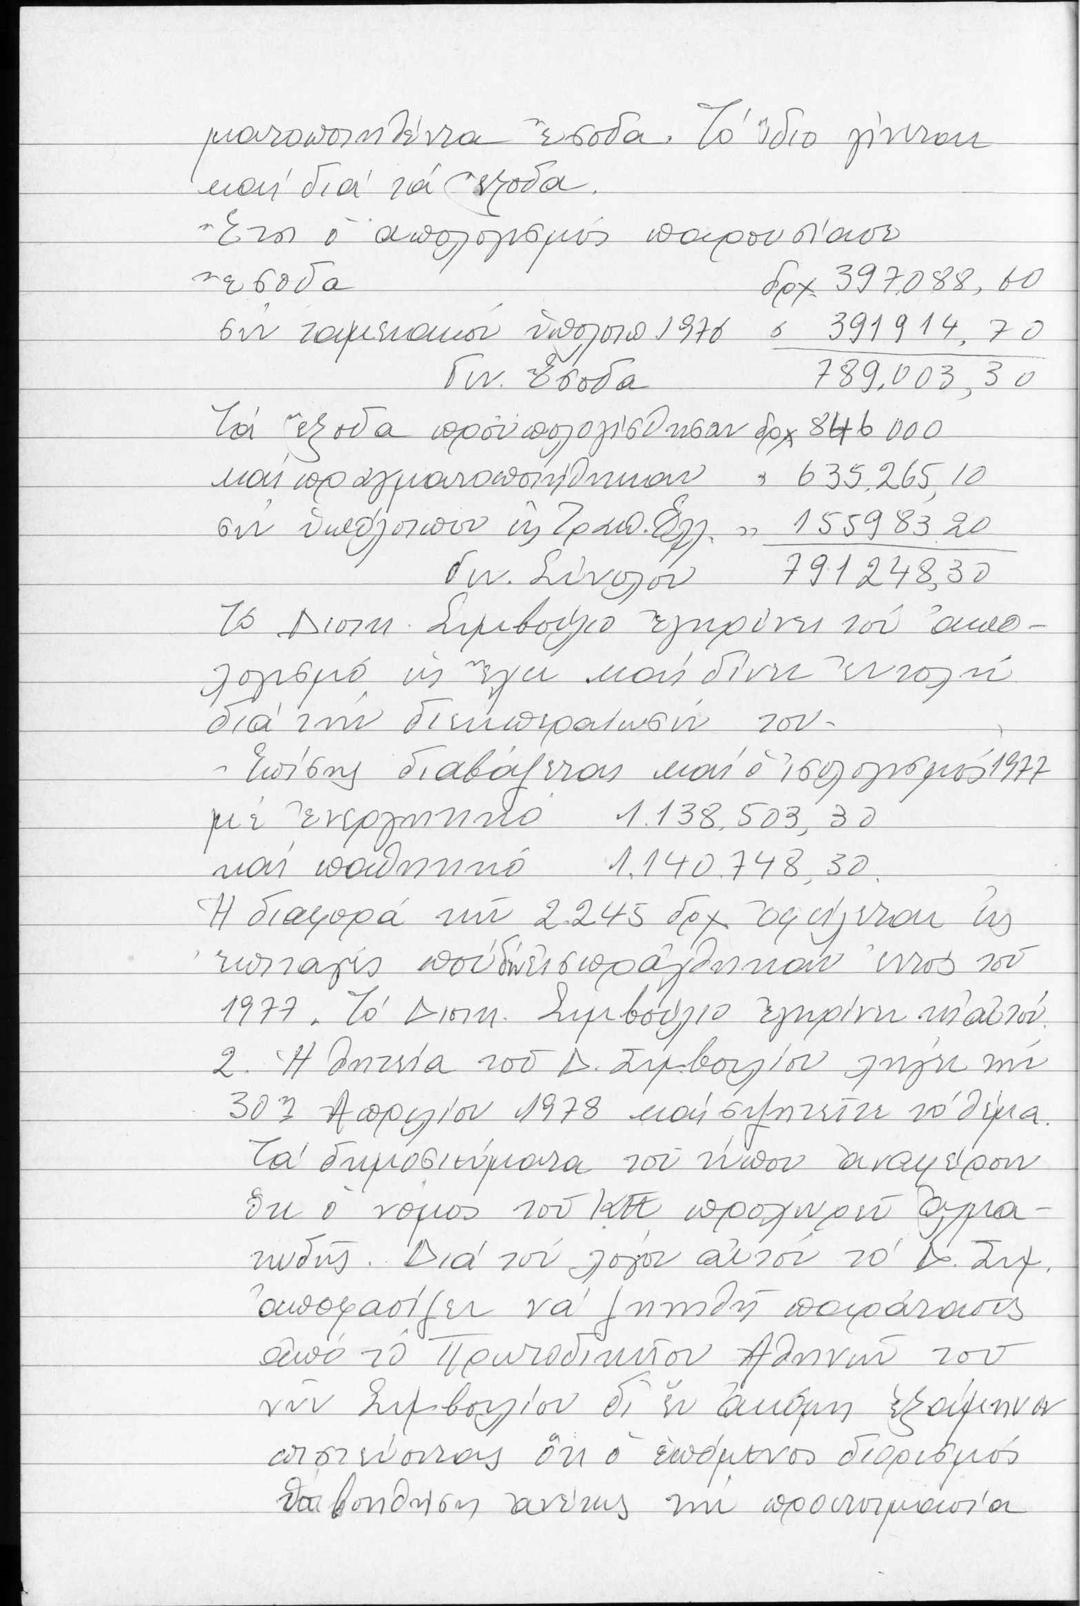 ματοποιηθέντα ἔσοδα. Τό ἴδιο γίνεται
καί διά τά ἔξοδα.
Ἔτσι ὁ ἀπολογισμός παρουσίασε
ἔσοδα δρχ. 397.088,60
σύν ταμειακόν ὑπόλοιπ 1976 " 391914,70
Συν. Ἔσοδα 789.003,30
Τά ἔξοδα προϋπολογίσθησαν δρχ 846000
καί πραγματοποιήθηκαν " 635.265,10
σύν ὑπόλοιπον εἰς Τραπ. Ἑλλ. " 155983,20
Συν. Σύνολον 791248,30
Τό Διοικ. Συμβούλιο ἐγκρίνει τόν ἀπο-
λογισμό ὡς ἔχει καί δίνει ἐντολή
διά τήν διεκπεραίωσίν του.
- Ἐπίσης διαβάζεται καί ὁ ἰσολογισμός 1977
μέ ἐνεργητικό 1.138.503,30
καί παθητικό 1.140.748,30.
Ἡ διαφορά τῶν 2.245 δρχ ὀφείλεται εἰς
ἐπιταγές πού δέν εἰσπράχθηκαν ἐντός τοῦ
1977. Τό Διοικ. Συμβούλιο ἐγκρίνει καί αὐτόν.
2. Ἡ θητεία τοῦ Δ. Συμβουλίου λήγει τήν
30ή Ἀπριλίου 1978 καί συζητεῖται τό θέμα.
Τά δημοσιεύματα τοῦ τύπου ἀναφέρουν
ὅτι ὁ νόμος τοῦ ΚΠΕ προχωρεῖ ἁλμα-
τωδῶς. Διά τόν λόγον αὐτόν τό Δ. Συμ.
ἀποφασίζει νά ζητηθῆ παράτασις
ἀπό τό Πρωτοδικεῖον Ἀθηνῶν τοῦ
νῦν Συμβουλίου δι' ἕν ἀκόμη ἑξάμηνον
πιστεύοντας ὅτι ὁ ἑπόμενος διορισμός
θά βοηθήση ἀνέτως τήν προετοιμασία